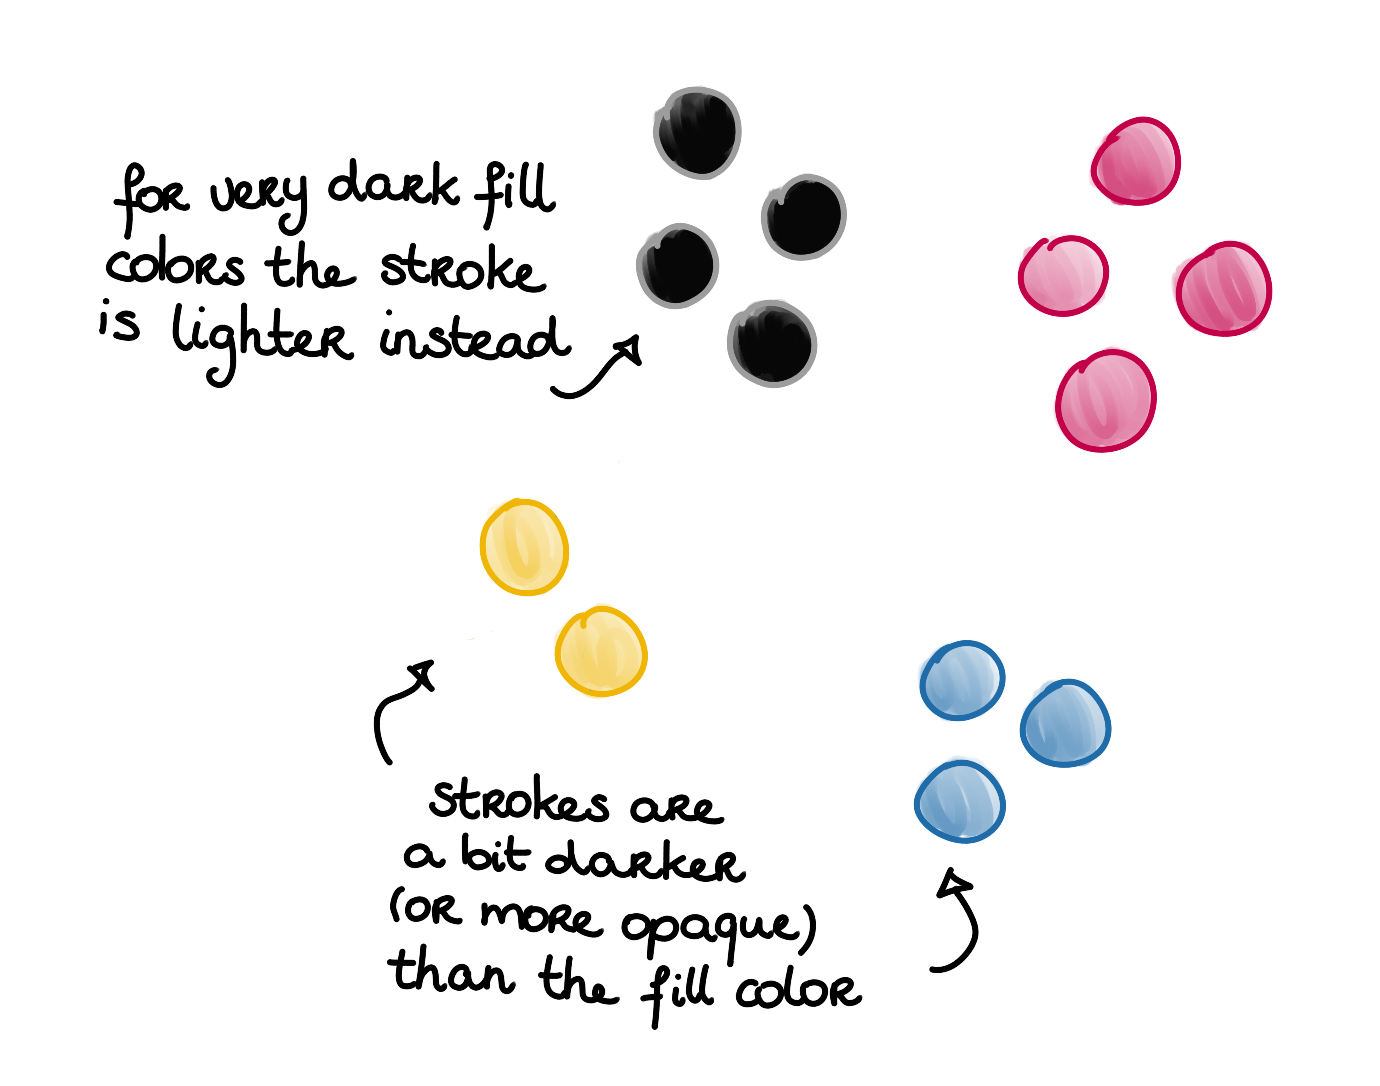 for very dark fill
colors the stroke
is lighter instead
strokes are
a bit darker
(or more opaque)
than the fill color